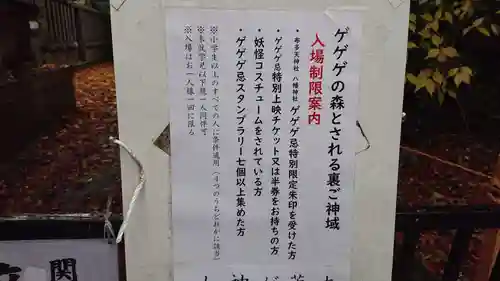 ゲゲゲの森とされる裏ご神域
入場制限案内
・布多天神社 八幡神社 ゲゲゲ忌特別限定朱印を受けた方
・ゲゲゲ忌特別上映チケット又は半券をお持ちの方
・妖怪コスチュームをされている方
・ゲゲゲ忌スタンプラリー七個以上集めた方
※小学生以上のすべての人に条件適用(4つのうちどれかに該当)
※未就学児以下親一人同伴可
※入場はお一人様一回に限る
関